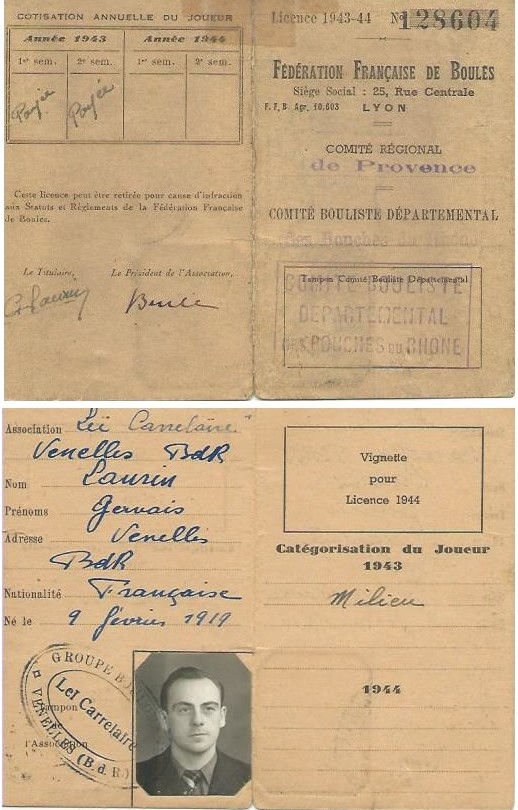 COTISATION ANNUELLE DU JOUEUR
Année 1943 Année 1944
1er sem. 2e sem. 1er sem. 2e sem.
Payée Payée
Cette licence peut être retirée pour cause d'infraction
aux Statuts et Règlements de la Fédération Française
de Boules.
Le Titulaire, Le Président de l'Association,
G. Laurin
Licence 1943-44 No 128604
FÉDÉRATION FRANÇAISE DE BOULES
Siège Social : 25, Rue Centrale
F. F. B. Agr. 10.603 LYON
COMITÉ RÉGIONAL
de Provence
COMITÉ BOULISTE DÉPARTEMENTAL
des Bouches du Rhône
Tampon Comité Bouliste Départemental
COMITE BOULISTE
DEPARTEMENTAL
DES BOUCHES DU RHONE
Association Leï Carrelaire
Venelles BdR
Nom Laurin
Prénoms Gervais
Adresse Venelles
BdR
Nationalité Française
Né le 9 février 1919
GROUPE
Leï Carrelaire
VENELLES (B.d.R.)
Tampon
de
l'Association
Vignette
pour
Licence 1944
Catégorisation du Joueur
1943
Milieu
1944